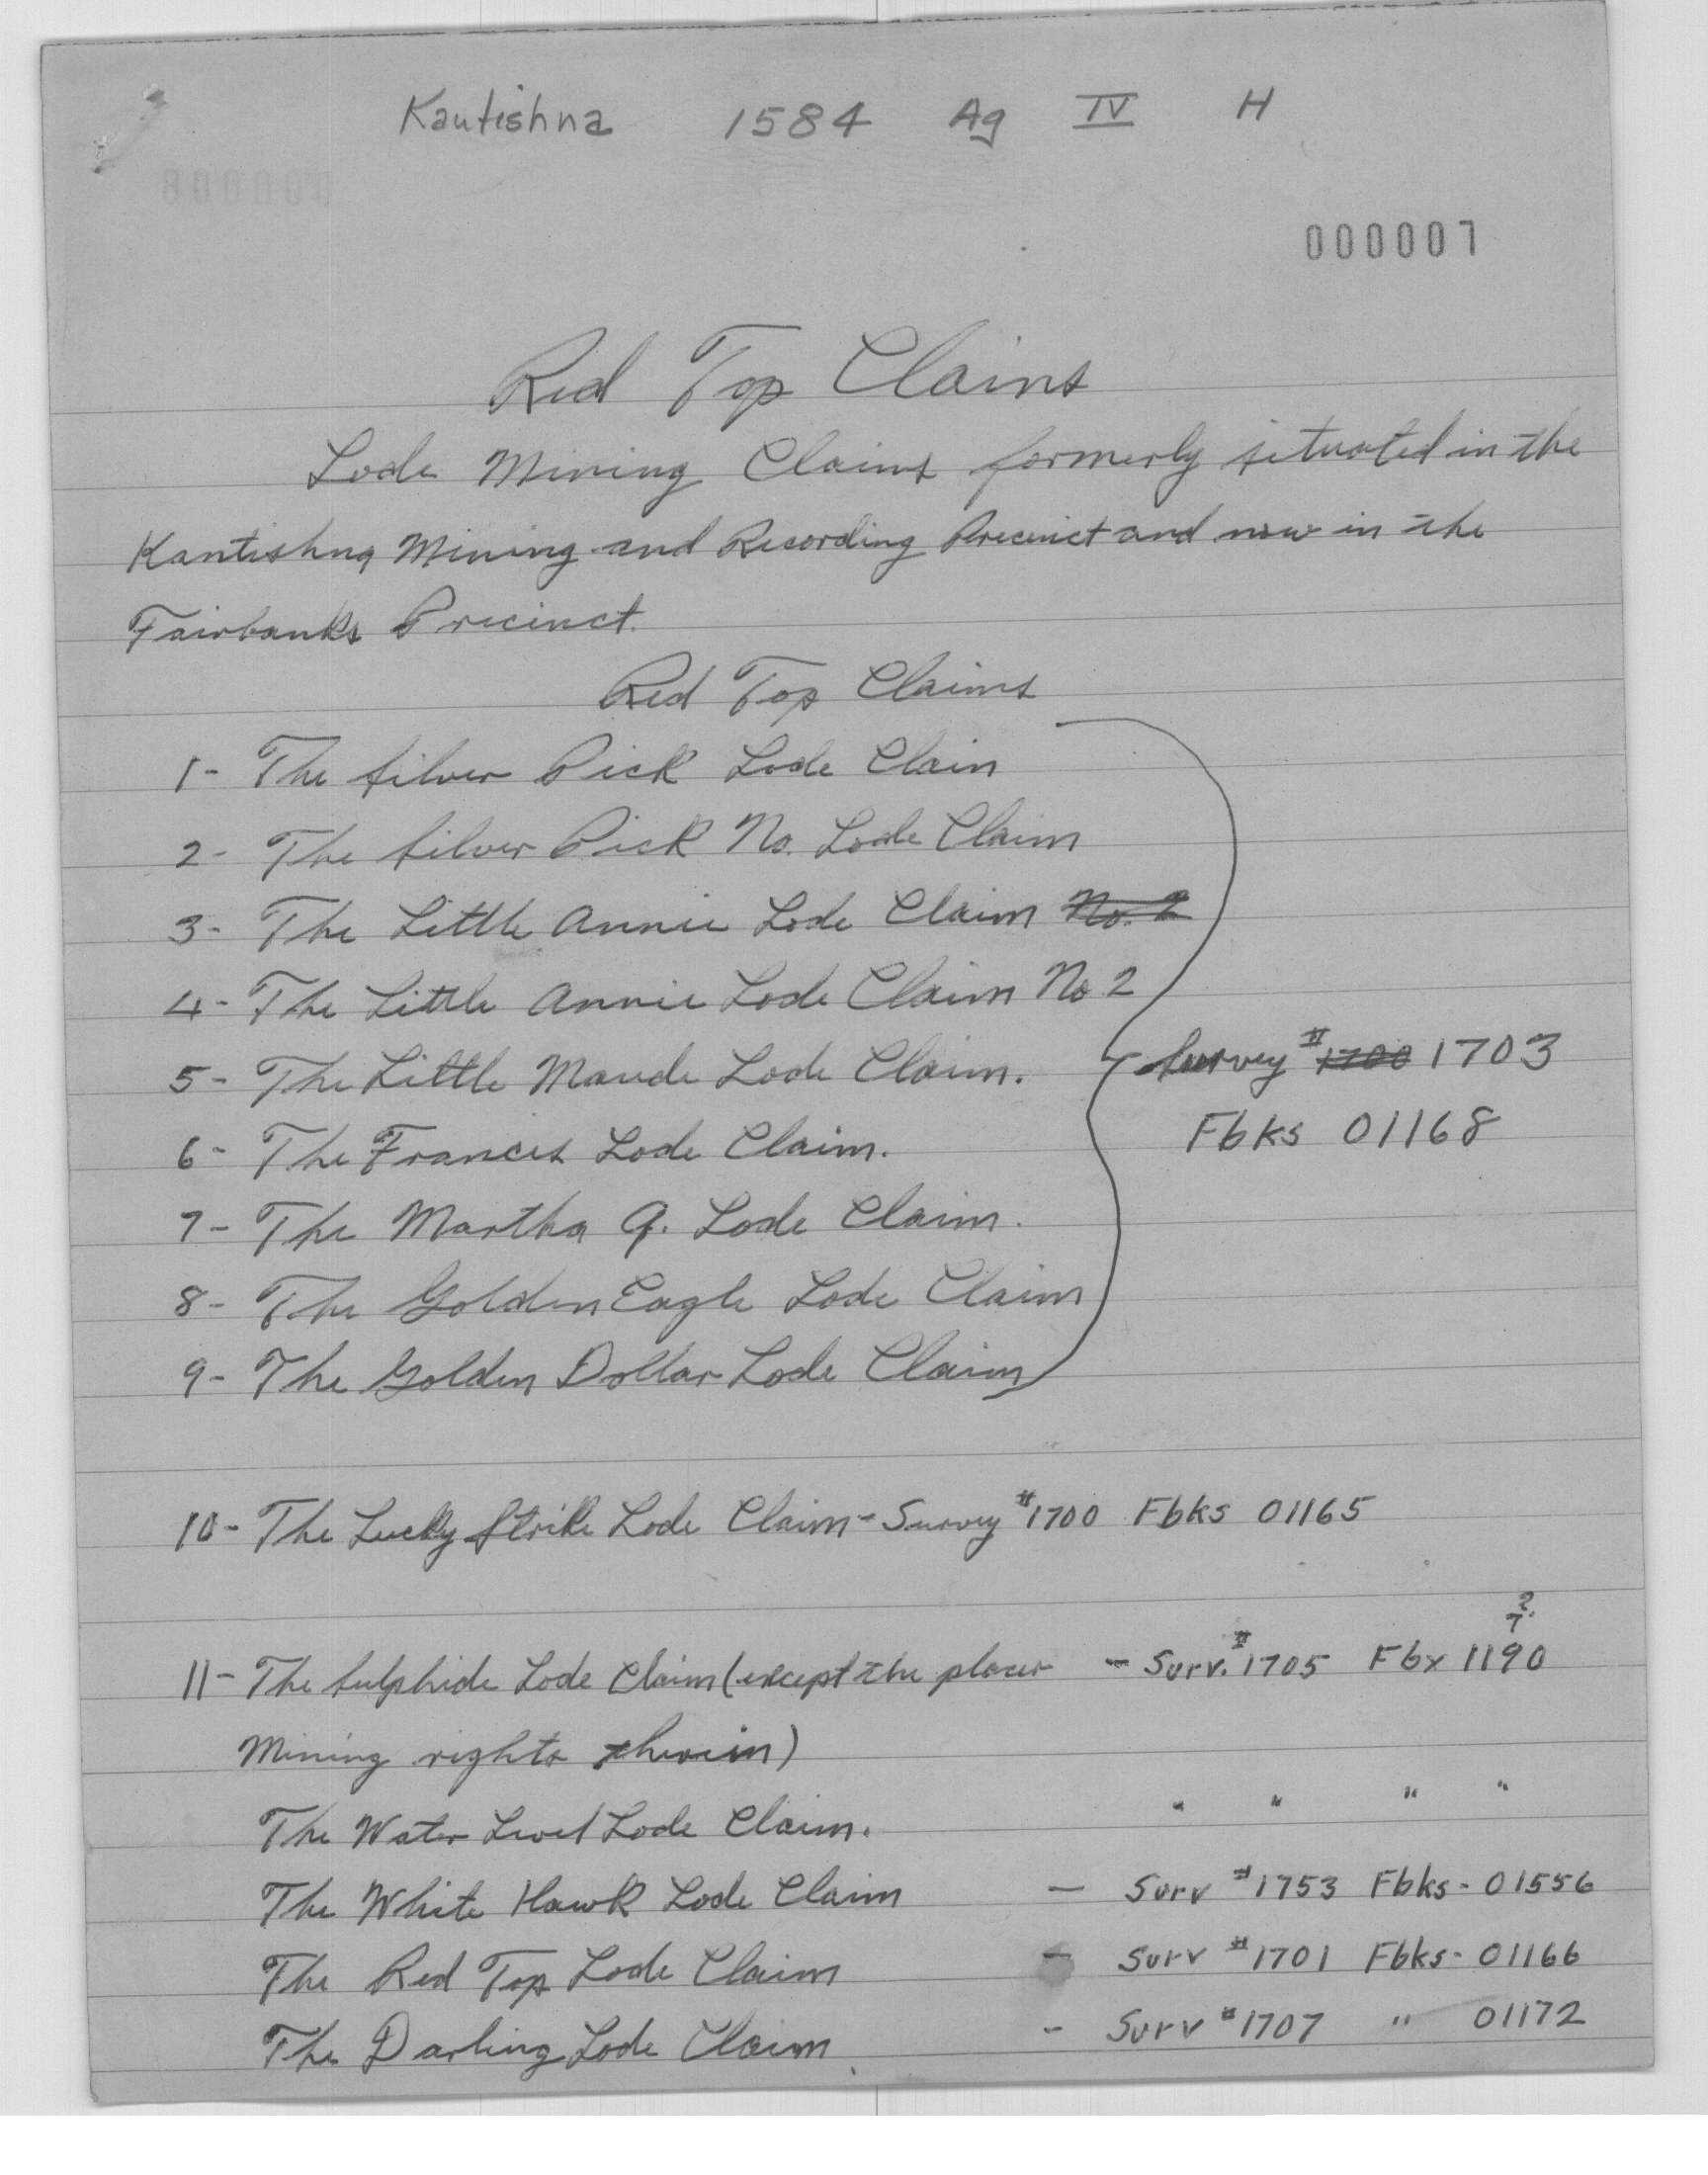 Kantishna 1584 Ag IV H
000007
Red Top Claims
Lode Mining Claims formerly situated in the
Kantishna Mining and Recording Precinct and now in the
Fairbanks Precinct.
Red Top Claims
1- The Silver Pick Lode Claim
2- The Silver Pick No. Lode Claim
3- The Little Annie Lode Claim No. 2
4- The Little Annie Lode Claim No 2
5- The Little Maude Lode Claim. Survey # 1700 1703
6- The Frances Lode Claim. Fbks 01168
7- The Martha Q. Lode Claim.
8- The Golden Eagle Lode Claim
9- The Golden Dollar Lode Claim
10- The Lucky Strike Lode Claim - Survey #1700 Fbks 01165
?
7
11- The Sulphide Lode Claim (except the placer - Surv. #1705 Fbx 1190
Mining rights therein)
The Water Level Lode Claim. " " " "
The White Hawk Lode Claim - Surv #1753 Fbks- 01556
The Red Top Lode Claim - Surv #1701 Fbks- 01166
The Darling Lode Claim - Surv #1707 " 01172